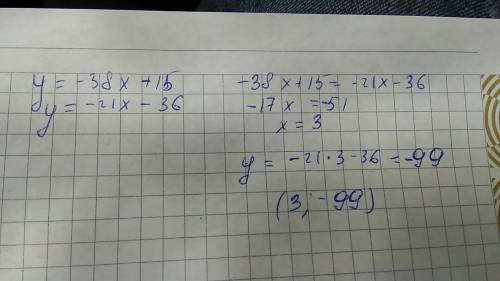 y = -38x + 15
y = -21x - 36
-38x + 15 = -21x - 36
-17x = -51
x = 3
y = -21·3 - 36 = -99
(3; -99)